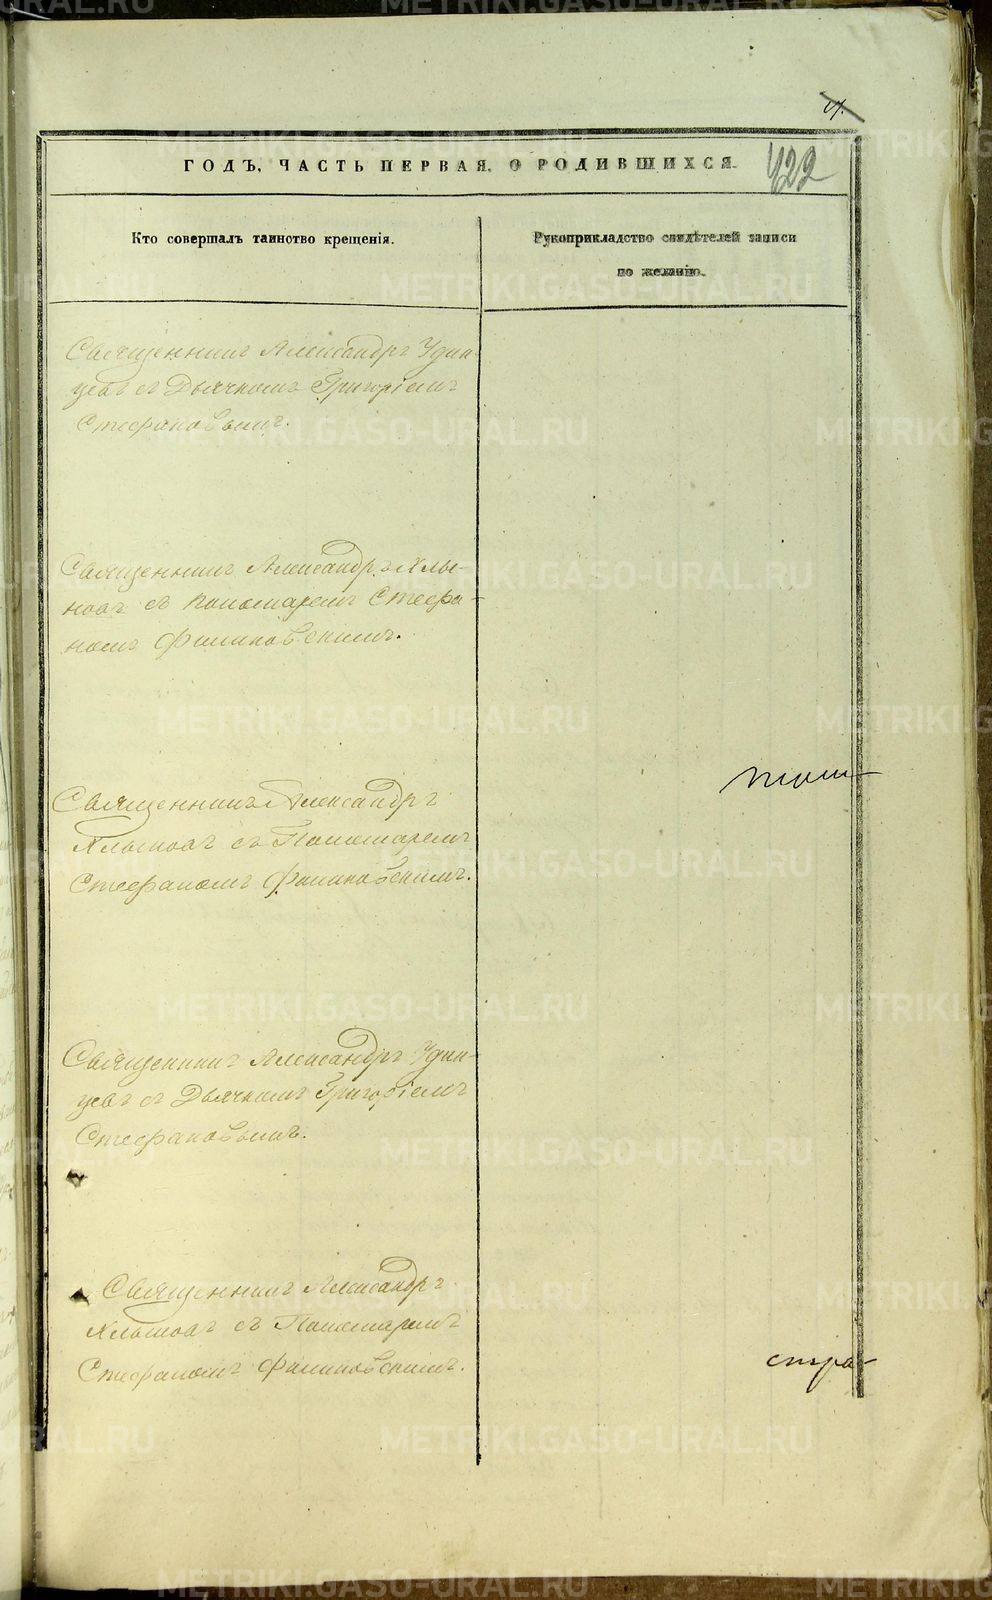 4.
422
ГОДЪ, ЧАСТЬ ПЕРВАЯ, О РОДИВШИХСЯ.
Кто совершалъ таинство крещенія.
Рукоприкладство свидѣтелей записи
по желанію.
Священникъ Александръ Удин-
цевъ съ Дьячкомъ Григоріемъ
Стефановымъ.
Священникъ Александръ Хлы-
новъ съ Пономаремъ Стефа-
номъ Филиновскимъ.
Священникъ Александръ
Хлыновъ съ Пономаремъ
Стефаномъ Филиновскимъ.
Священникъ Александръ Удин-
цевъ съ Дьячкомъ Григоріемъ
Стефановымъ.
Священникъ Александръ
Хлыновъ съ Пономаремъ
Стефаномъ Филиновскимъ.
METRIKI.GASO-URAL.RU